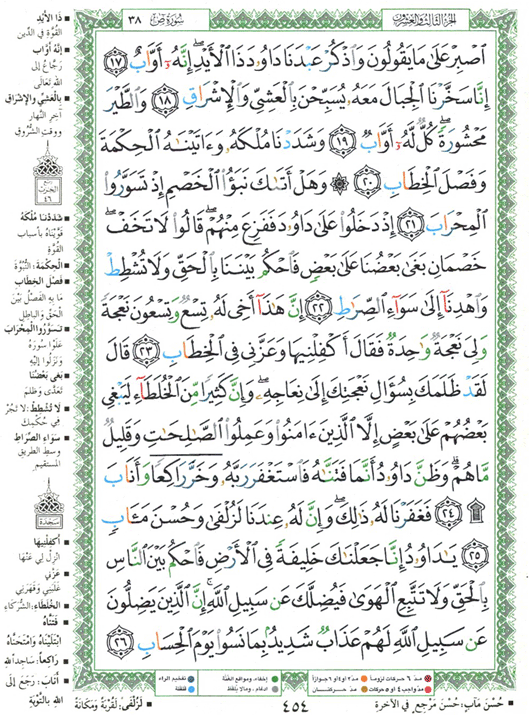 الجزء الثالث والعشرون
سورة ص ٣٨
ٱصۡبِرۡ عَلَىٰ مَا يَقُولُونَ وَٱذۡكُرۡ عَبۡدَنَا دَاوُۥدَ ذَا ٱلۡأَيۡدِۖ إِنَّهُۥٓ أَوَّابٌ ١٧
إِنَّا سَخَّرۡنَا ٱلۡجِبَالَ مَعَهُۥ يُسَبِّحۡنَ بِٱلۡعَشِيِّ وَٱلۡإِشۡرَاقِ ١٨ وَٱلطَّيۡرَ
مَحۡشُورَةٗۖ كُلّٞ لَّهُۥٓ أَوَّابٞ ١٩ وَشَدَدۡنَا مُلۡكَهُۥ وَءَاتَيۡنَٰهُ ٱلۡحِكۡمَةَ
وَفَصۡلَ ٱلۡخِطَابِ ٢٠ ۞ وَهَلۡ أَتَىٰكَ نَبَؤُاْ ٱلۡخَصۡمِ إِذۡ تَسَوَّرُواْ
ٱلۡمِحۡرَابَ ٢١ إِذۡ دَخَلُواْ عَلَىٰ دَاوُۥدَ فَفَزِعَ مِنۡهُمۡۖ قَالُواْ لَا تَخَفۡۖ
خَصۡمَانِ بَغَىٰ بَعۡضُنَا عَلَىٰ بَعۡضٖ فَٱحۡكُم بَيۡنَنَا بِٱلۡحَقِّ وَلَا تُشۡطِطۡ
وَٱهۡدِنَآ إِلَىٰ سَوَآءِ ٱلصِّرَٰطِ ٢٢ إِنَّ هَٰذَآ أَخِي لَهُۥ تِسۡعٞ وَتِسۡعُونَ نَعۡجَةٗ
وَلِيَ نَعۡجَةٞ وَٰحِدَةٞ فَقَالَ أَكۡفِلۡنِيهَا وَعَزَّنِي فِي ٱلۡخِطَابِ ٢٣ قَالَ
لَقَدۡ ظَلَمَكَ بِسُؤَالِ نَعۡجَتِكَ إِلَىٰ نِعَاجِهِۦۖ وَإِنَّ كَثِيرٗا مِّنَ ٱلۡخُلَطَآءِ لَيَبۡغِي
بَعۡضُهُمۡ عَلَىٰ بَعۡضٍ إِلَّا ٱلَّذِينَ ءَامَنُواْ وَعَمِلُواْ ٱلصَّٰلِحَٰتِ وَقَلِيلٞ
مَّا هُمۡۗ وَظَنَّ دَاوُۥدُ أَنَّمَا فَتَنَّٰهُ فَٱسۡتَغۡفَرَ رَبَّهُۥ وَخَرَّۤ رَاكِعٗاۤ وَأَنَابَ
۩ ٢٤ فَغَفَرۡنَا لَهُۥ ذَٰلِكَۖ وَإِنَّ لَهُۥ عِندَنَا لَزُلۡفَىٰ وَحُسۡنَ مَـَٔابٖ
٢٥ يَٰدَاوُۥدُ إِنَّا جَعَلۡنَٰكَ خَلِيفَةٗ فِي ٱلۡأَرۡضِ فَٱحۡكُم بَيۡنَ ٱلنَّاسِ
بِٱلۡحَقِّ وَلَا تَتَّبِعِ ٱلۡهَوَىٰ فَيُضِلَّكَ عَن سَبِيلِ ٱللَّهِۚ إِنَّ ٱلَّذِينَ يَضِلُّونَ
عَن سَبِيلِ ٱللَّهِ لَهُمۡ عَذَابٞ شَدِيدُۢ بِمَا نَسُواْ يَوۡمَ ٱلۡحِسَابِ ٢٦
ذا الأيد
القوة في الدين
إنه أواب
رجاع إلى
الله تعالى
بالعشي والإشراق
آخر النهار
ووقت الشروق
الحزب
٤٦
شددنا ملكه
قويناه بأسباب
القوة
الحكمة: النبوة
فصل الخطاب
ما به الفصل بين
الحق والباطل
تسوروا المحراب
علوا سوره
ونزلوا إليه
بغى بعضنا
تعدى وظلم
لا تشطط: لا تجر
في حكمك
سواء الصراط
وسط الطريق
المستقيم
سجدة
أكفلنيها
انزل لي عنها
عزني
غلبني وقهرني
الخلطاء: الشركاء
فتناه
ابتليناه وامتحناه
راكعا: ساجدا لله
أناب: رجع إلى
الله بالتوبة
لزلفى: لقربة ومكانة
حسن مآب: حسن مرجع في الآخرة
مد ٦ حركات لزوما
مد ٢ أو ٤ أو ٦ جوازا
مد واجب ٤ أو ٥ حركات
مد حركتان
إخفاء، ومواقع الغنة
إدغام، وما لا يلفظ
تفخيم الراء
قلقلة
٤٥٤